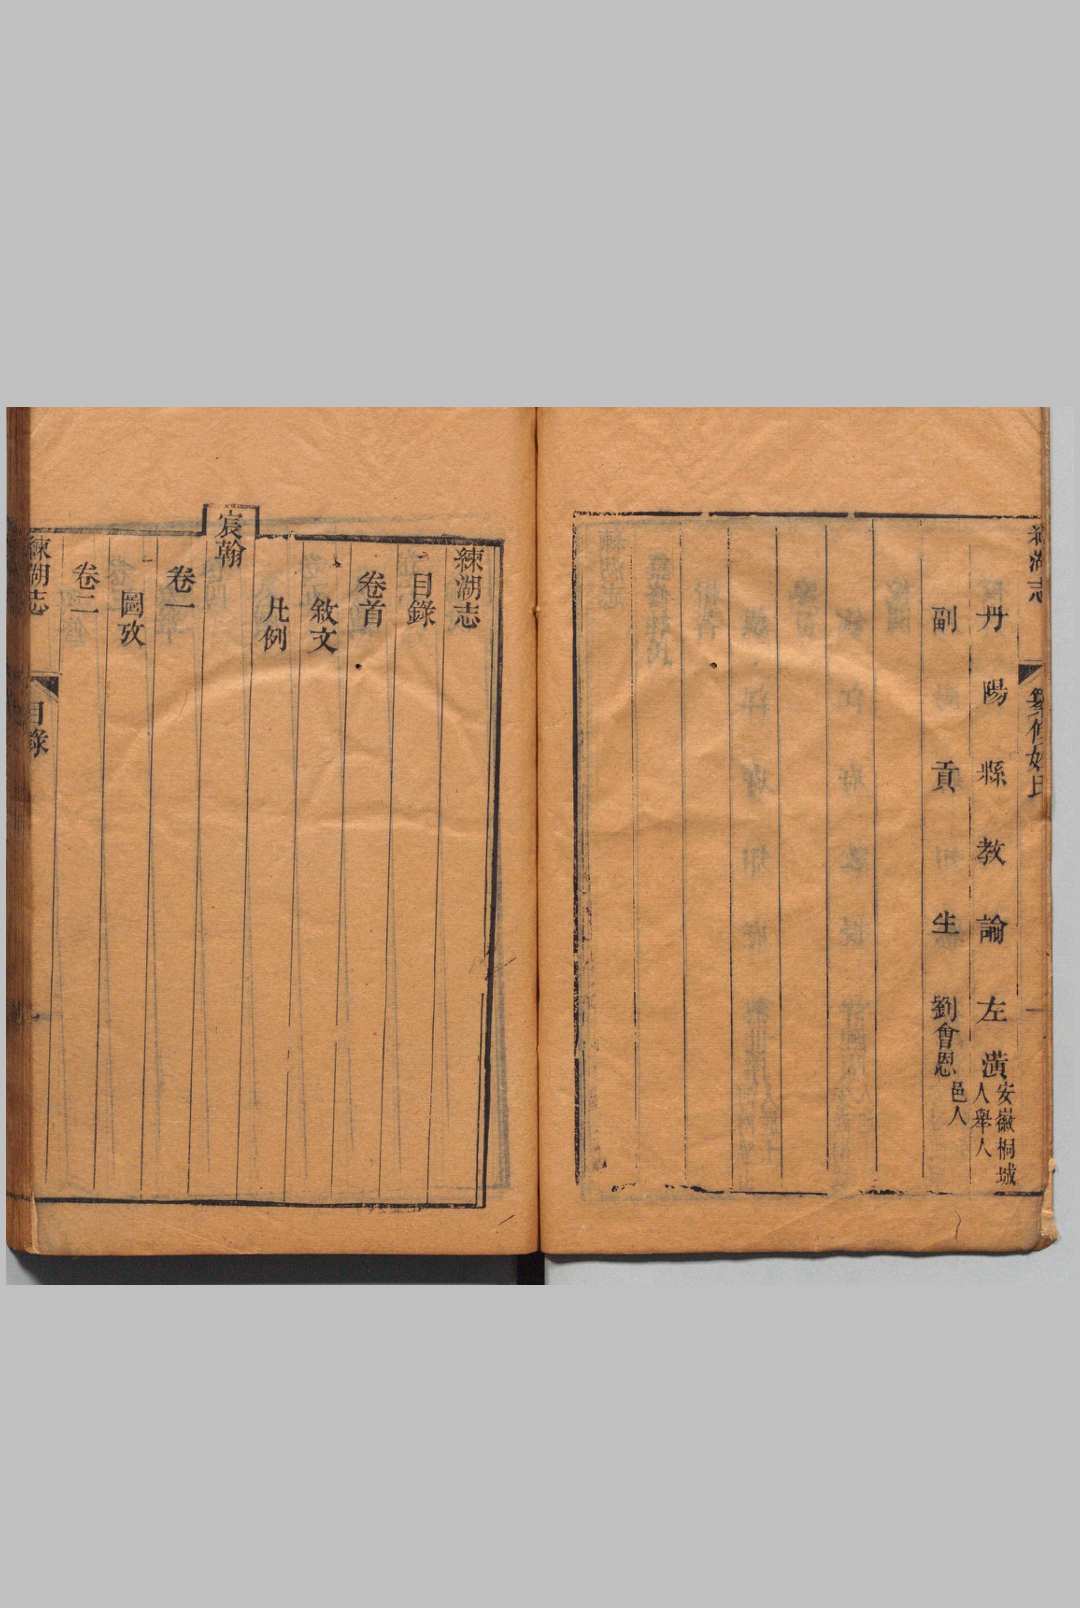 練湖志
纂修姓氏
丹陽縣教諭左潢安徽桐城人舉人
副貢生劉會恩邑人
練湖志
目錄
卷首
敘文
凡例
宸翰
卷一
圖攷
卷二
練湖志
目錄